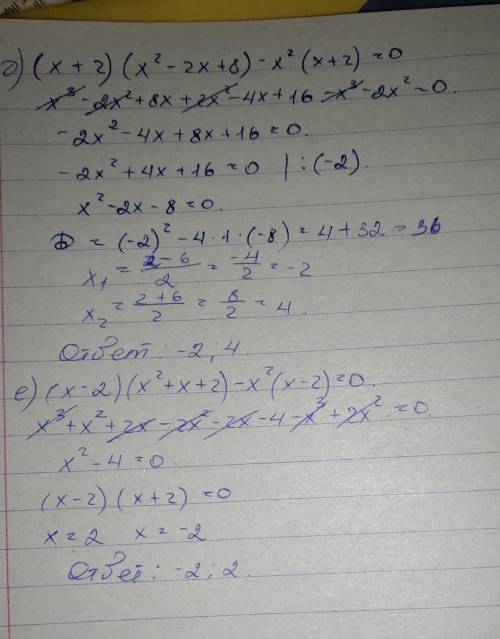 д) (x+2)(x²-2x+8)-x²(x+2)=0
x³-2x²+8x+2x²-4x+16-x³-2x²=0.
-2x²-4x+8x+16=0.
-2x²+4x+16=0 |:(-2).
x²-2x-8=0.
D=(-2)²-4·1·(-8)=4+32=36
x₁=(2-6)/2=-4/2=-2
x₂=(2+6)/2=8/2=4.
Ответ: -2; 4.
е) (x-2)(x²+x+2)-x²(x-2)=0.
x³+x²+2x-2x²-2x-4-x³+2x²=0.
x²-4=0.
(x-2)(x+2)=0
x=2 x=-2
Ответ: -2; 2.